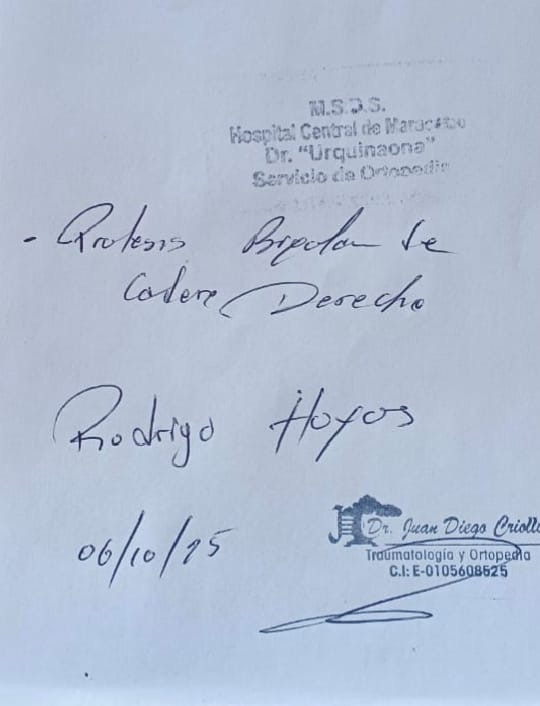 M.S.D.S.
Hospital Central de Maracaibo
Dr. "Urquinaona"
Servicio de Ortopedia
- Protesis Bipolar de
Cadera Derecha
Rodrigo Hoyos
06/10/25
Dr. Juan Diego Criollo
Traumatología y Ortopedia
C.I: E-0105608525